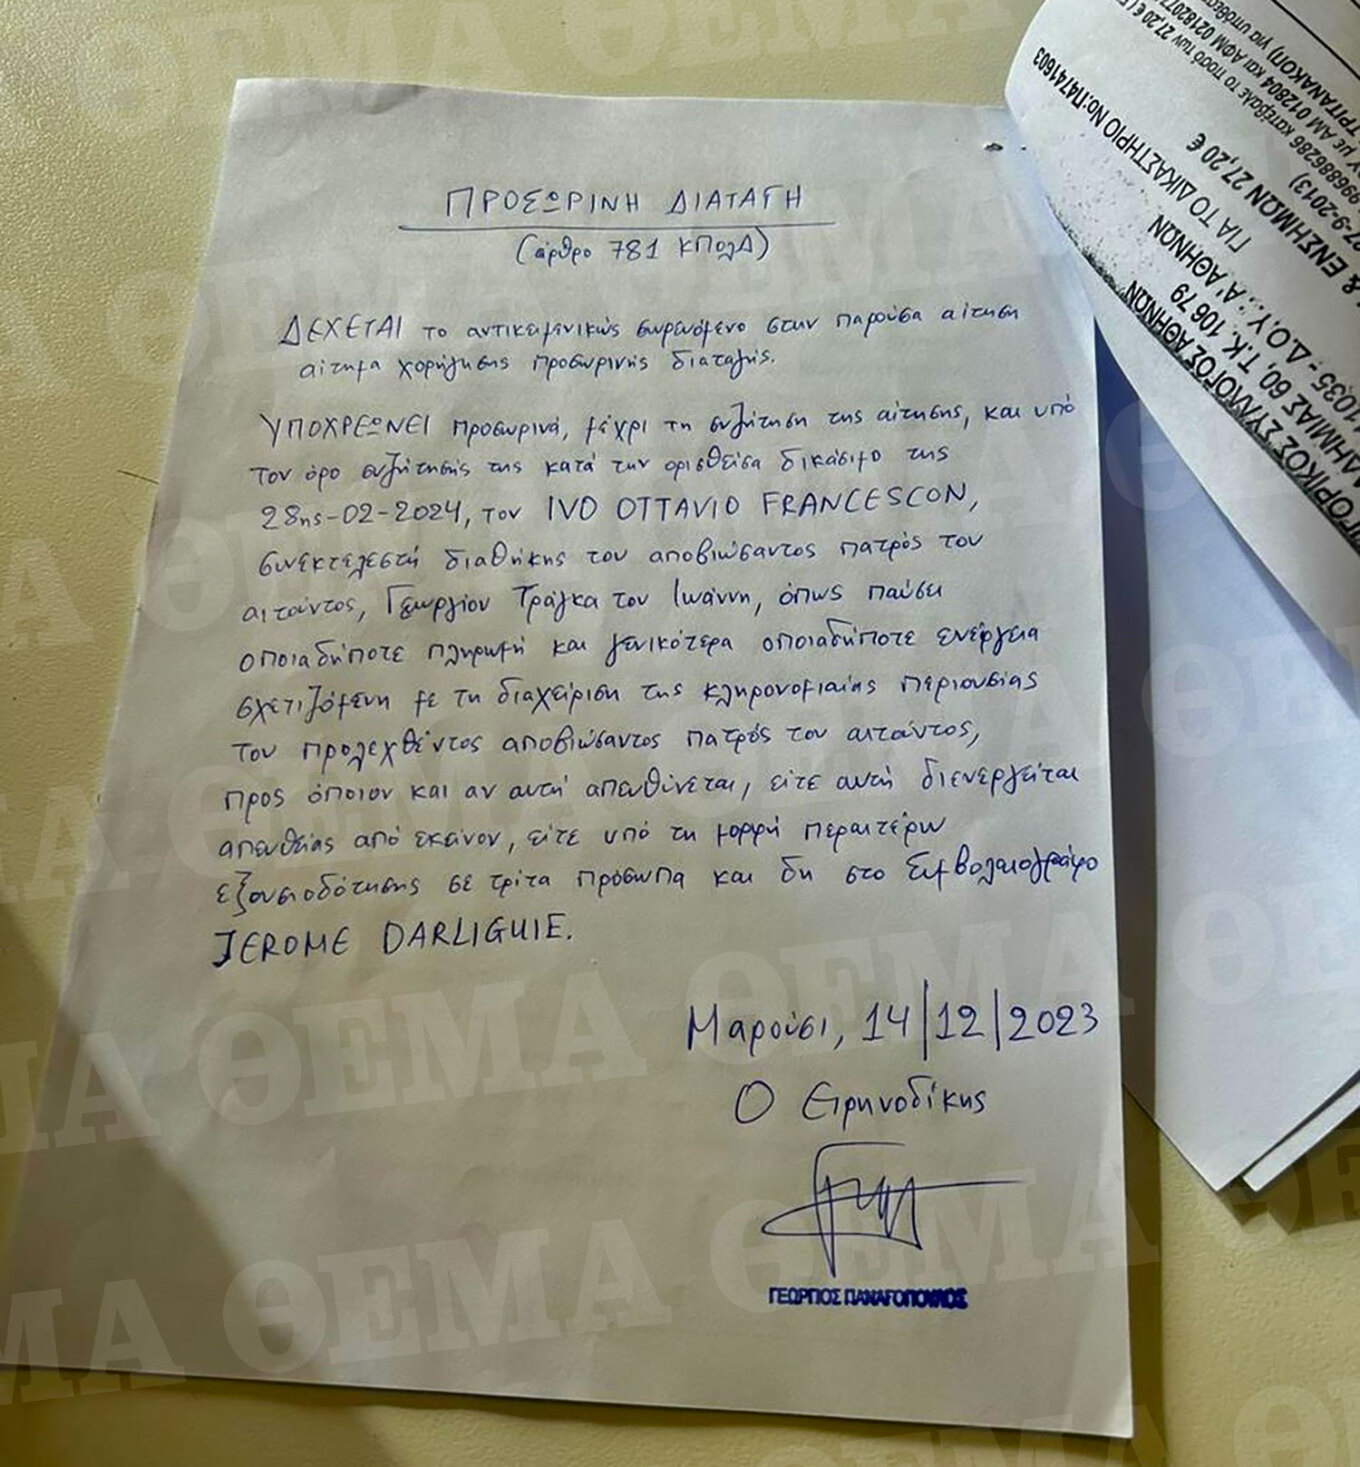 ΠΡΟΣΩΡΙΝΗ ΔΙΑΤΑΓΗ
(άρθρο 781 ΚΠολΔ)
ΔΕΧΕΤΑΙ το αντικειμενικώς σωρευόμενο στην παρούσα αίτηση
αίτημα χορήγησης προσωρινής διαταγής.
ΥΠΟΧΡΕΩΝΕΙ προσωρινά, μέχρι τη συζήτηση της αίτησης, και υπό
τον όρο συζήτησής της κατά την ορισθείσα δικάσιμο της
28ης-02-2024, τον IVO OTTAVIO FRANCESCON,
συνεκτελεστή διαθήκης του αποβιώσαντος πατρός του
αιτούντος, Γεωργίου Τράγκα του Ιωάννη, όπως παύσει
οποιαδήποτε πληρωμή και γενικότερα οποιαδήποτε ενέργεια
σχετιζόμενη με τη διαχείριση της κληρονομιαίας περιουσίας
του προλεχθέντος αποβιώσαντος πατρός του αιτούντος,
προς όποιον και αν αυτή απευθύνεται, είτε αυτή διενεργείται
απευθείας από εκείνον, είτε υπό τη μορφή περαιτέρω
εξουσιοδότησης σε τρίτα πρόσωπα και δη στο Συμβολαιογράφο
JEROME DARLIGUIE.
Μαρούσι, 14/12/2023
Ο Ειρηνοδίκης
ΓΕΩΡΓΙΟΣ ΠΑΝΑΓΟΠΟΥΛΟΣ
ΓΙΑ ΤΟ ΔΙΚΑΣΤΗΡΙΟ Νο:Π4741603
& ΕΝΣΗΜΩΝ 27,20 €
Δ.Ο.Υ.: Α' ΑΘΗΝΩΝ
60, Τ.Κ. 106 79
ΣΥΛΛΟΓΟΣ ΑΘΗΝΩΝ
ΘΕΜΑ